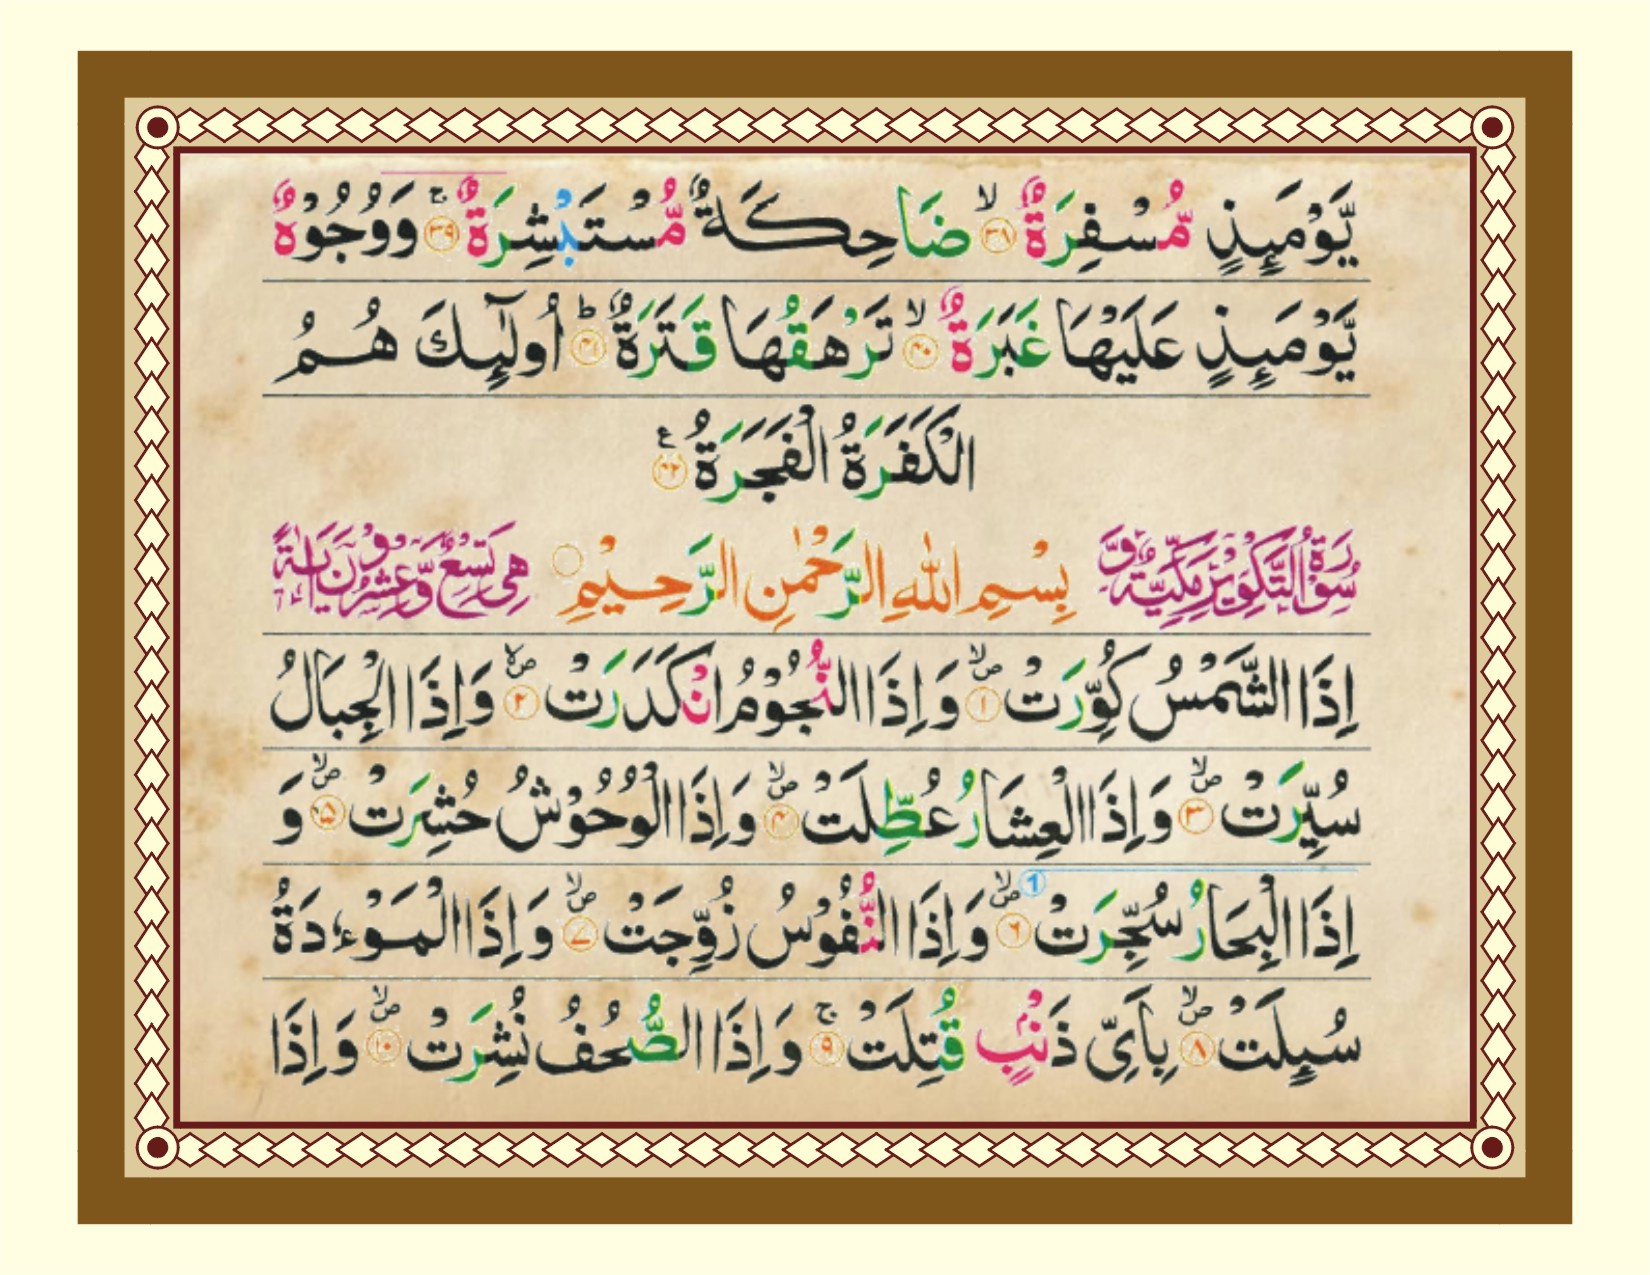 يَّوْمَىِٕذٍ مُّسْفِرَةٌ ۙ﴿۳۸﴾ ضَاحِكَةٌ مُّسْتَبْشِرَةٌ ۚ﴿۳۹﴾ وَوُجُوْهٌ
يَّوْمَىِٕذٍ عَلَيْهَا غَبَرَةٌ ۙ﴿۴۰﴾ تَرْهَقُهَا قَتَرَةٌ ؕ﴿۴۱﴾ اُولٰٓىِٕكَ هُمُ
الْكَفَرَةُ الْفَجَرَةُ ﴿۴۲﴾ ع
سُوْرَةُ التَّكْوِيْرِ مَكِّيَّةٌ وَّ بِسْمِ اللّٰهِ الرَّحْمٰنِ الرَّحِيْمِ هِىَ تِسْعٌ وَّعِشْرُوْنَ اٰيَةً
اِذَا الشَّمْسُ كُوِّرَتْ ۪ۙ﴿۱﴾ وَاِذَا النُّجُوْمُ انْكَدَرَتْ ۪ۙ﴿۲﴾ وَاِذَا الْجِبَالُ
سُيِّرَتْ ۪ۙ﴿۳﴾ وَاِذَا الْعِشَارُ عُطِّلَتْ ۪ۙ﴿۴﴾ وَاِذَا الْوُحُوْشُ حُشِرَتْ ۪ۙ﴿۵﴾ وَ
اِذَا الْبِحَارُ سُجِّرَتْ 1 ۪ۙ﴿۶﴾ وَاِذَا النُّفُوْسُ زُوِّجَتْ ۪ۙ﴿۷﴾ وَاِذَا الْمَوْءٗدَةُ
سُىِٕلَتْ ۪ۙ﴿۸﴾ بِاَىِّ ذَنْۢبٍ قُتِلَتْ ۚ﴿۹﴾ وَاِذَا الصُّحُفُ نُشِرَتْ ۪ۙ﴿۱۰﴾ وَاِذَا